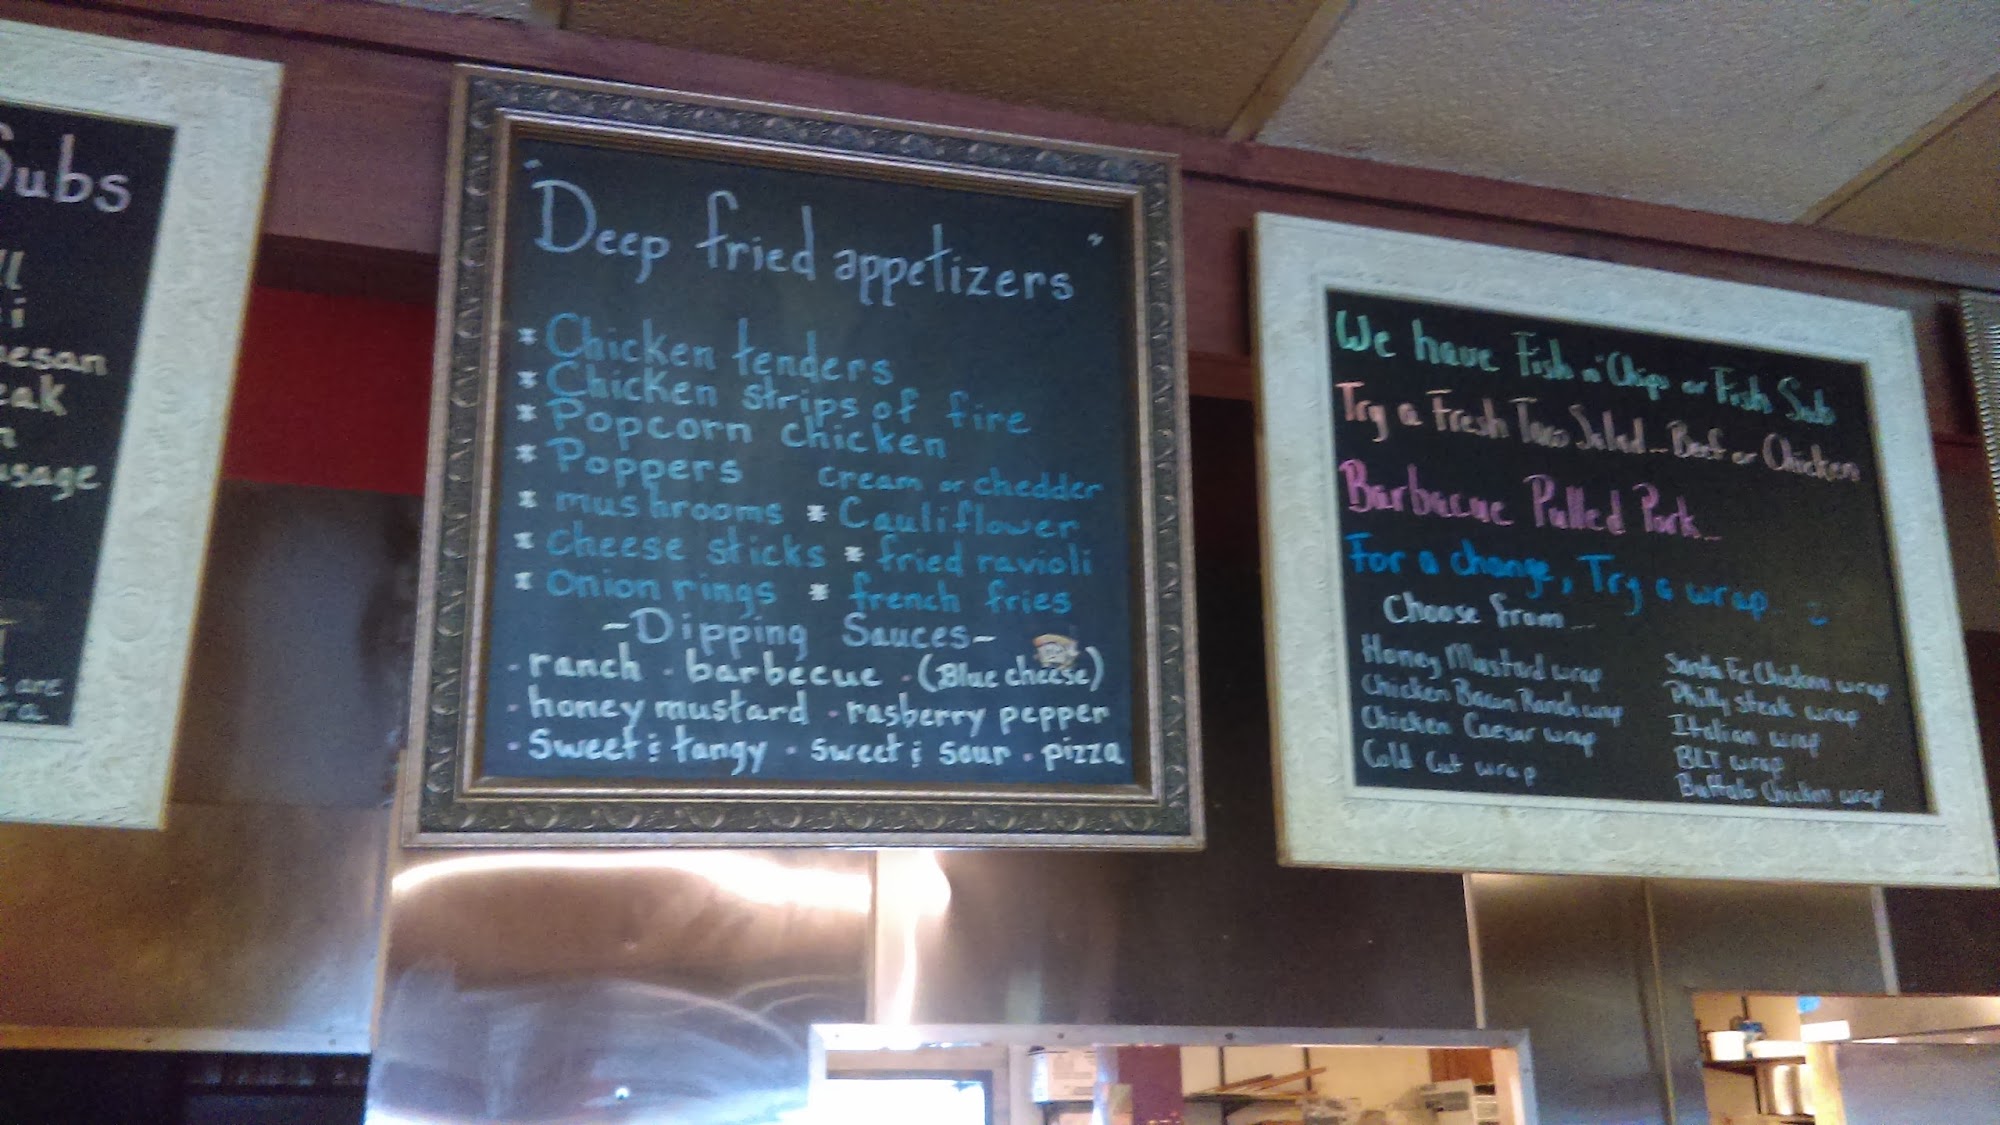 Subs
ll
i
esan
eak
n
usage
s are
ra
" Deep fried appetizers "
* Chicken tenders
* Chicken strips of fire
* Popcorn chicken
* Poppers cream or chedder
* mushrooms * Cauliflower
* cheese sticks * fried ravioli
* onion rings * french fries
- Dipping Sauces -
· ranch · barbecue · (Blue cheese)
· honey mustard · rasberry pepper
· Sweet & tangy · sweet & sour · pizza
We have Fish n' Chips or Fish Sub
Try a Fresh Taco Salad... Beef or Chicken
Barbacue Pulled Pork...
For a change, Try a wrap
Choose from...
Honey Mustard wrap
Chicken Bacon Ranch wrap
Chicken Caesar wrap
Cold Cut wrap
Santa Fe Chicken wrap
Philly steak wrap
Italian wrap
BLT wrap
Buffalo Chicken wrap